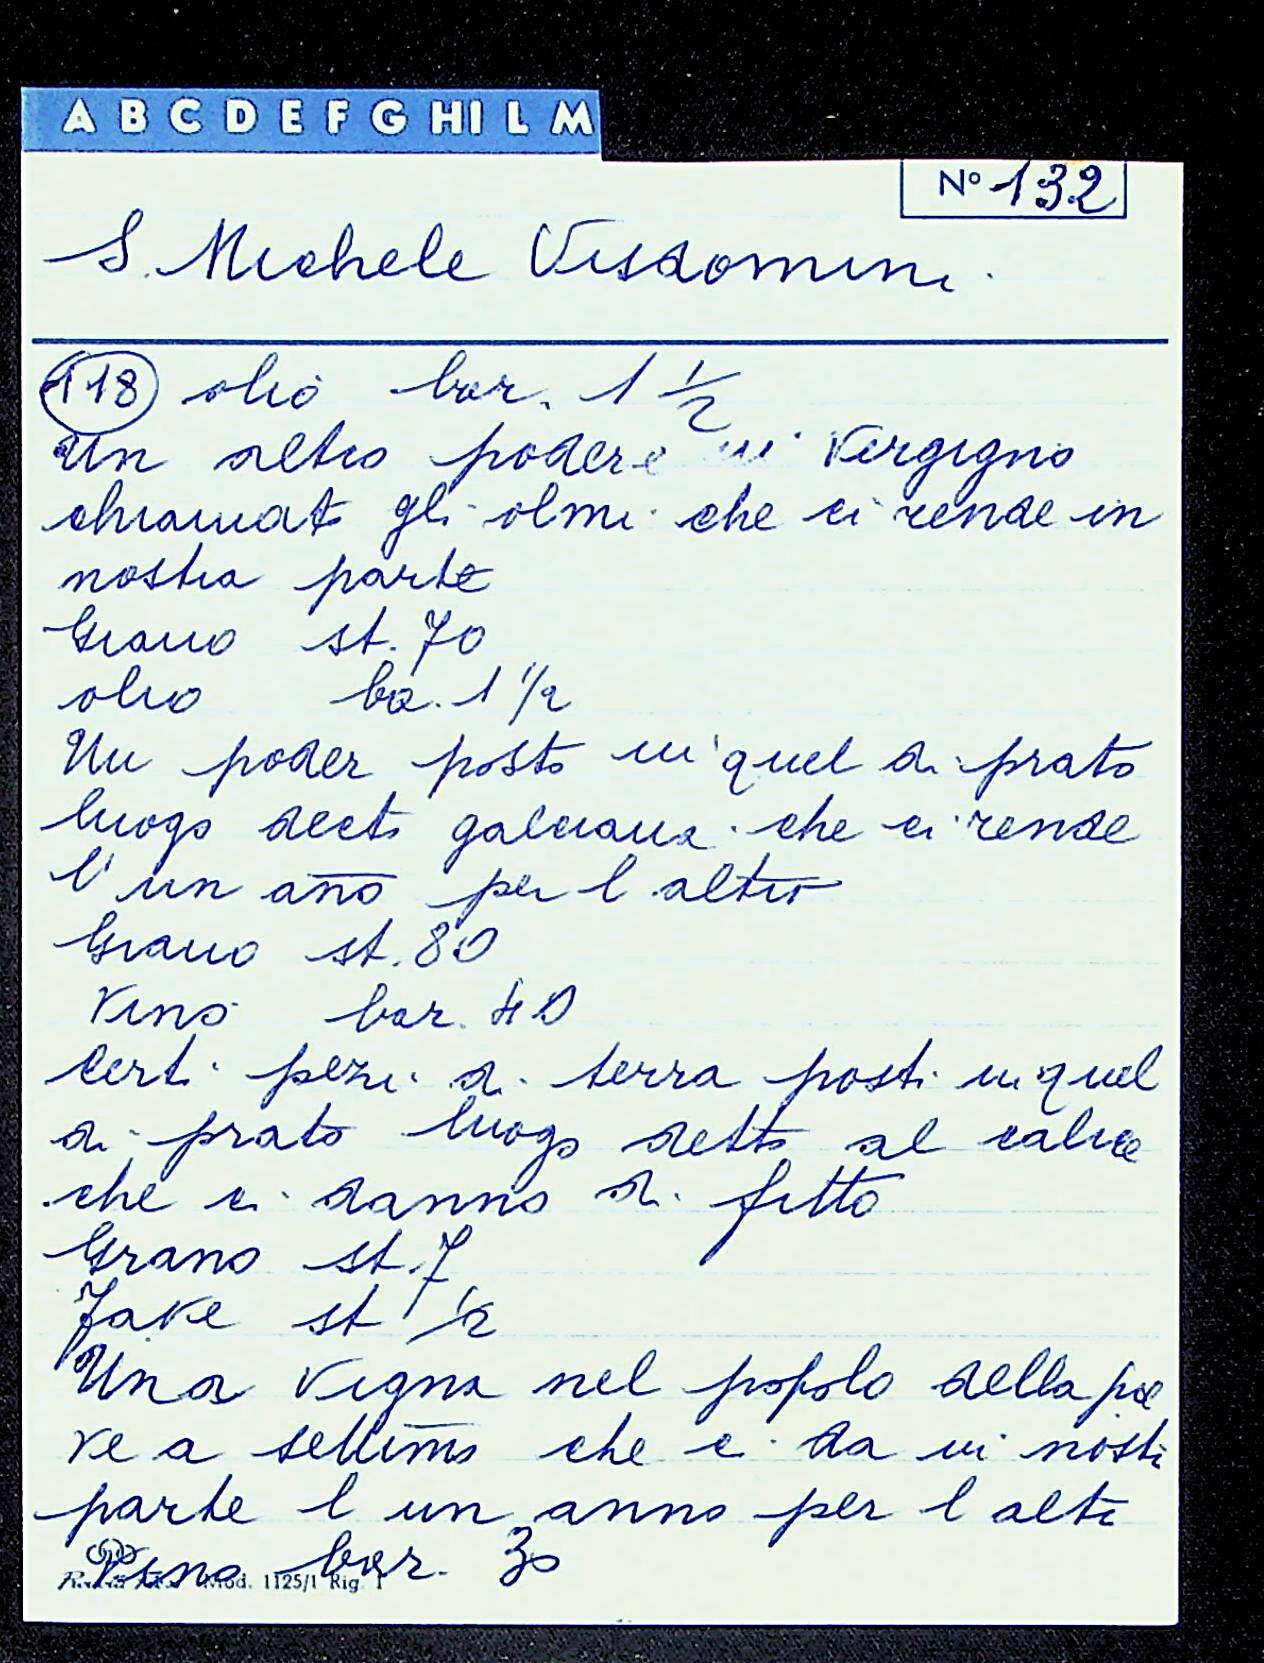 A B C D E F G H I L M
N° 132
S. Michele Visdomini.
118 olio bar. 1 1/2
Un altro podere in Vergigno
chiamato gli olmi che ci rende in
nostra parte
Grano st. 70
olio ba. 1 1/2
Un poder posto in quel di prato
luogo decto galciana che ci rende
l'un año per l altro
Grano st. 80
Vino bar. 40
certi pezi di terra posti in quel
di prato luogo detto al calice
che ci danno di fitto
Grano st. 7
Fave st 1/2
Una vigna nel popolo della pie
ve a settimo che ci da in nostr
parte l un anno per l altr
Vino bar. 30
Mod. 1125/1 Rig. 1